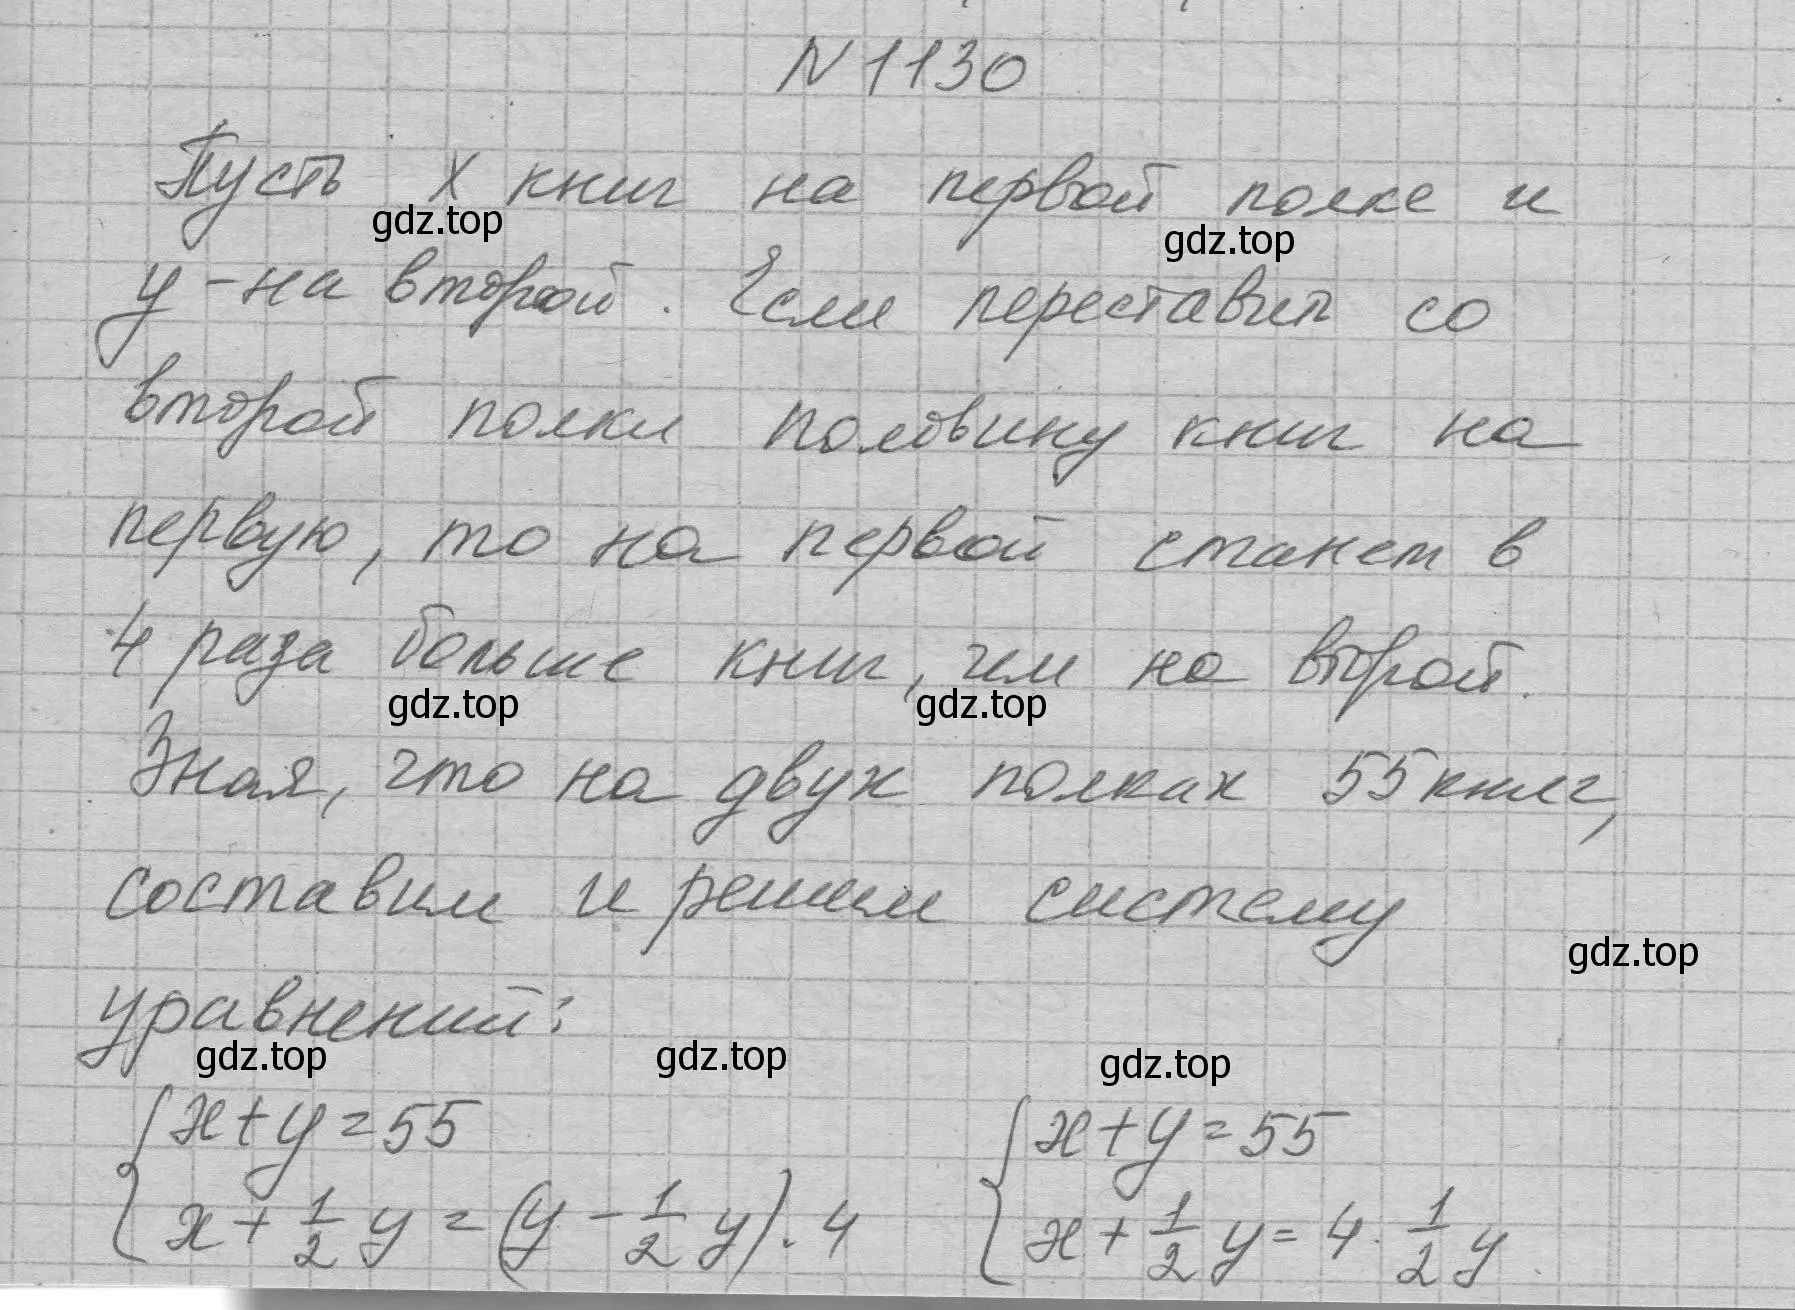 N 1130
Пусть x книг на первой полке и
gdz.top gdz.top
y - на второй. Если переставит со
второй полки половину книг на
первую, то на первой станет в
4 раза больше книг, чем на второй.
gdz.top gdz.top
Зная, что на двух полках 55 книг,
составим и решим систему
gdz.top
уравнений:
gdz.top gdz.top gdz.top
{ x + y = 55 { x + y = 55
x + 1/2 y = (y - 1/2 y) · 4 x + 1/2 y = 4 · 1/2 y